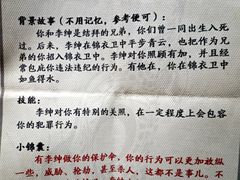 背景故事（不用记忆，参考便可）：
和李绅是结拜的兄弟，你们曾一同出生入死
过。后来，李绅在锦衣卫中平步青云，也把作为兄
弟的你招入锦衣卫中。李绅对你照顾有加，并且经
常包庇你违法违纪的行为。有他在，你在锦衣卫中
如鱼得水。
技能：
李绅对你有特别的关照，在一定程度上会包容
你的犯罪行为。
小锦囊：
有李绅做你的保护伞，你的行为可以更加放纵
一些，威胁、抢劫、甚至杀人，这都不是事儿。不